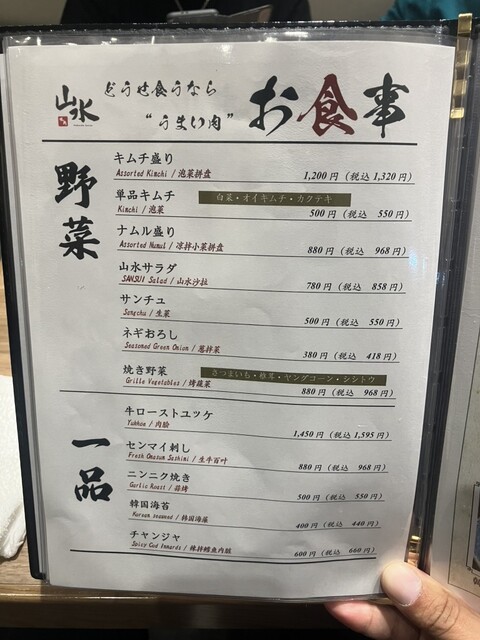 山水
どうせ食うなら
"うまい肉"
お食事
野菜
キムチ盛り
Assorted Kimchi / 泡菜拼盘
1,200円 (税込 1,320円)
単品キムチ
白菜・オイキムチ・カクテキ
Kimchi / 泡菜
500円 (税込 550円)
ナムル盛り
Assorted Namul / 凉拌小菜拼盘
880円 (税込 968円)
山水サラダ
SANSUI Salad / 山水沙拉
780円 (税込 858円)
サンチュ
Sangchu / 生菜
500円 (税込 550円)
ネギおろし
Seasoned Green Onion / 葱拌菜
380円 (税込 418円)
焼き野菜
さつまいも・椎茸・ヤングコーン・シシトウ
Grille Vegetables / 烤蔬菜
880円 (税込 968円)
一品
牛ローストユッケ
Yukhoe / 肉脍
1,450円 (税込 1,595円)
センマイ刺し
Fresh Omasum Sashimi / 生牛百叶
880円 (税込 968円)
ニンニク焼き
Garlic Roast / 蒜烤
500円 (税込 550円)
韓国海苔
Korean seaweed / 韩国海苔
400円 (税込 440円)
チャンジャ
Spicy Cod Innards / 辣拌鳕鱼内脏
600円 (税込 660円)